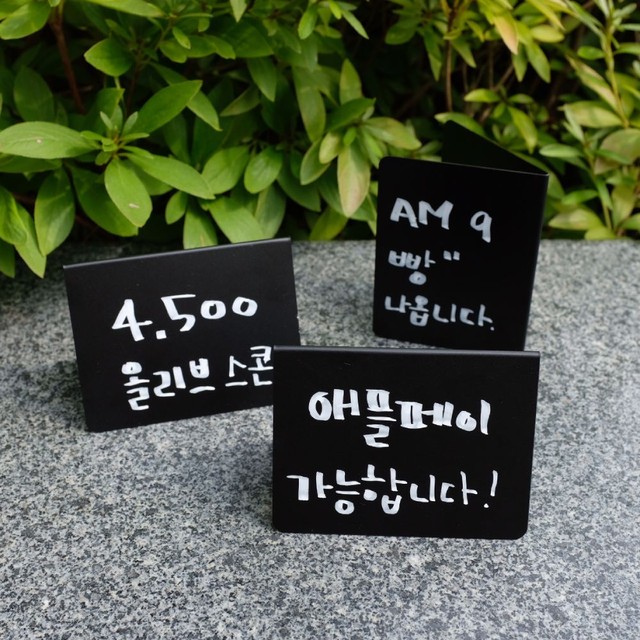 4.500
올리브 스콘
AM 9
빵"
나옵니다.
애플페이
가능합니다!